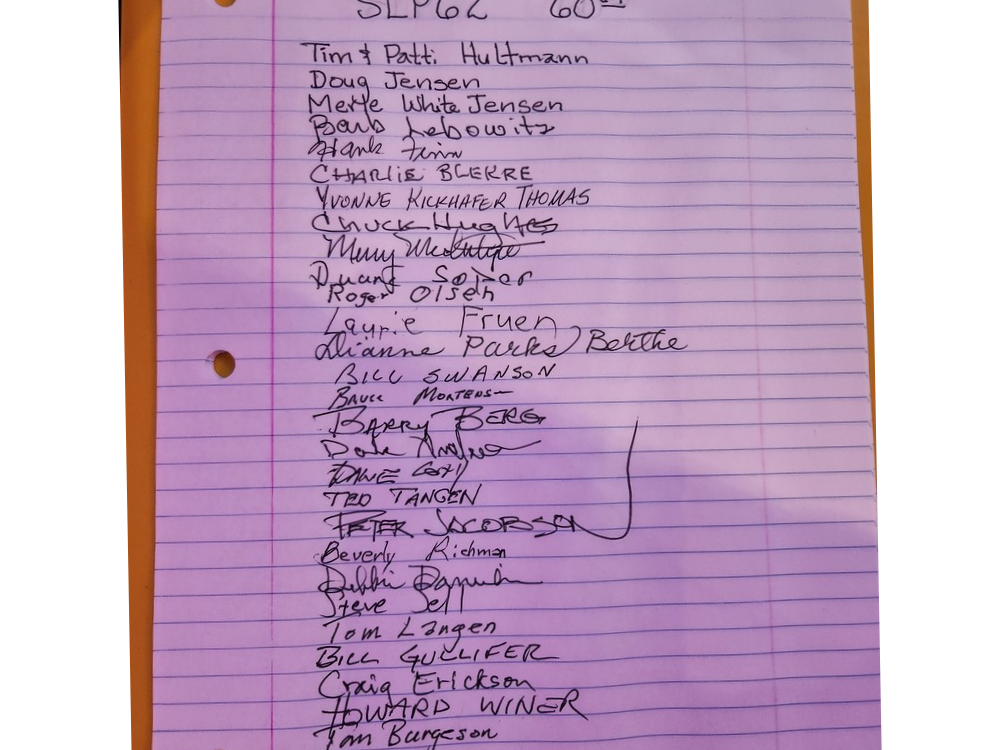 SLP62 60th
Tim & Patti Hultmann
Doug Jensen
Merle White Jensen
Barb Lebowitz
Hank Finn
CHARLIE BLEKRE
YVONNE KICKHAFER THOMAS
Chuck Hughes
Duane
Roger Olsen
Laurie Fruen
Dianne Parks) Berthe
BILL SWANSON
BARRY BERG
DAVE
TED TANGEN
PETER JACOBSON
Beverly Richman
Debbie
Steve Sell
Tom Langen
BILL GULLIFER
Craig Erickson
HOWARD WINER
Tom Burgeson